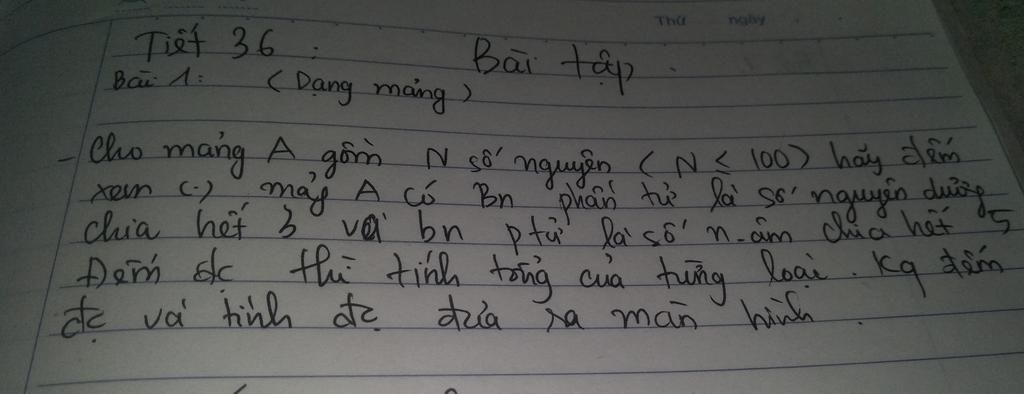 Thứ ngày
Tiết 36 : Bài tập
Bài 1: (Dạng mảng)
- Cho mảng A gồm N số nguyên (N ≤ 100) hãy đếm
xem (.) mảy A có Bn phần tử là số nguyên dương
chia hết 3 và bn ptử là số n.âm chia hết 5
Đếm đc thì tính tổng của từng loại. Kq đếm
đc và tính đc đưa ra màn hình.